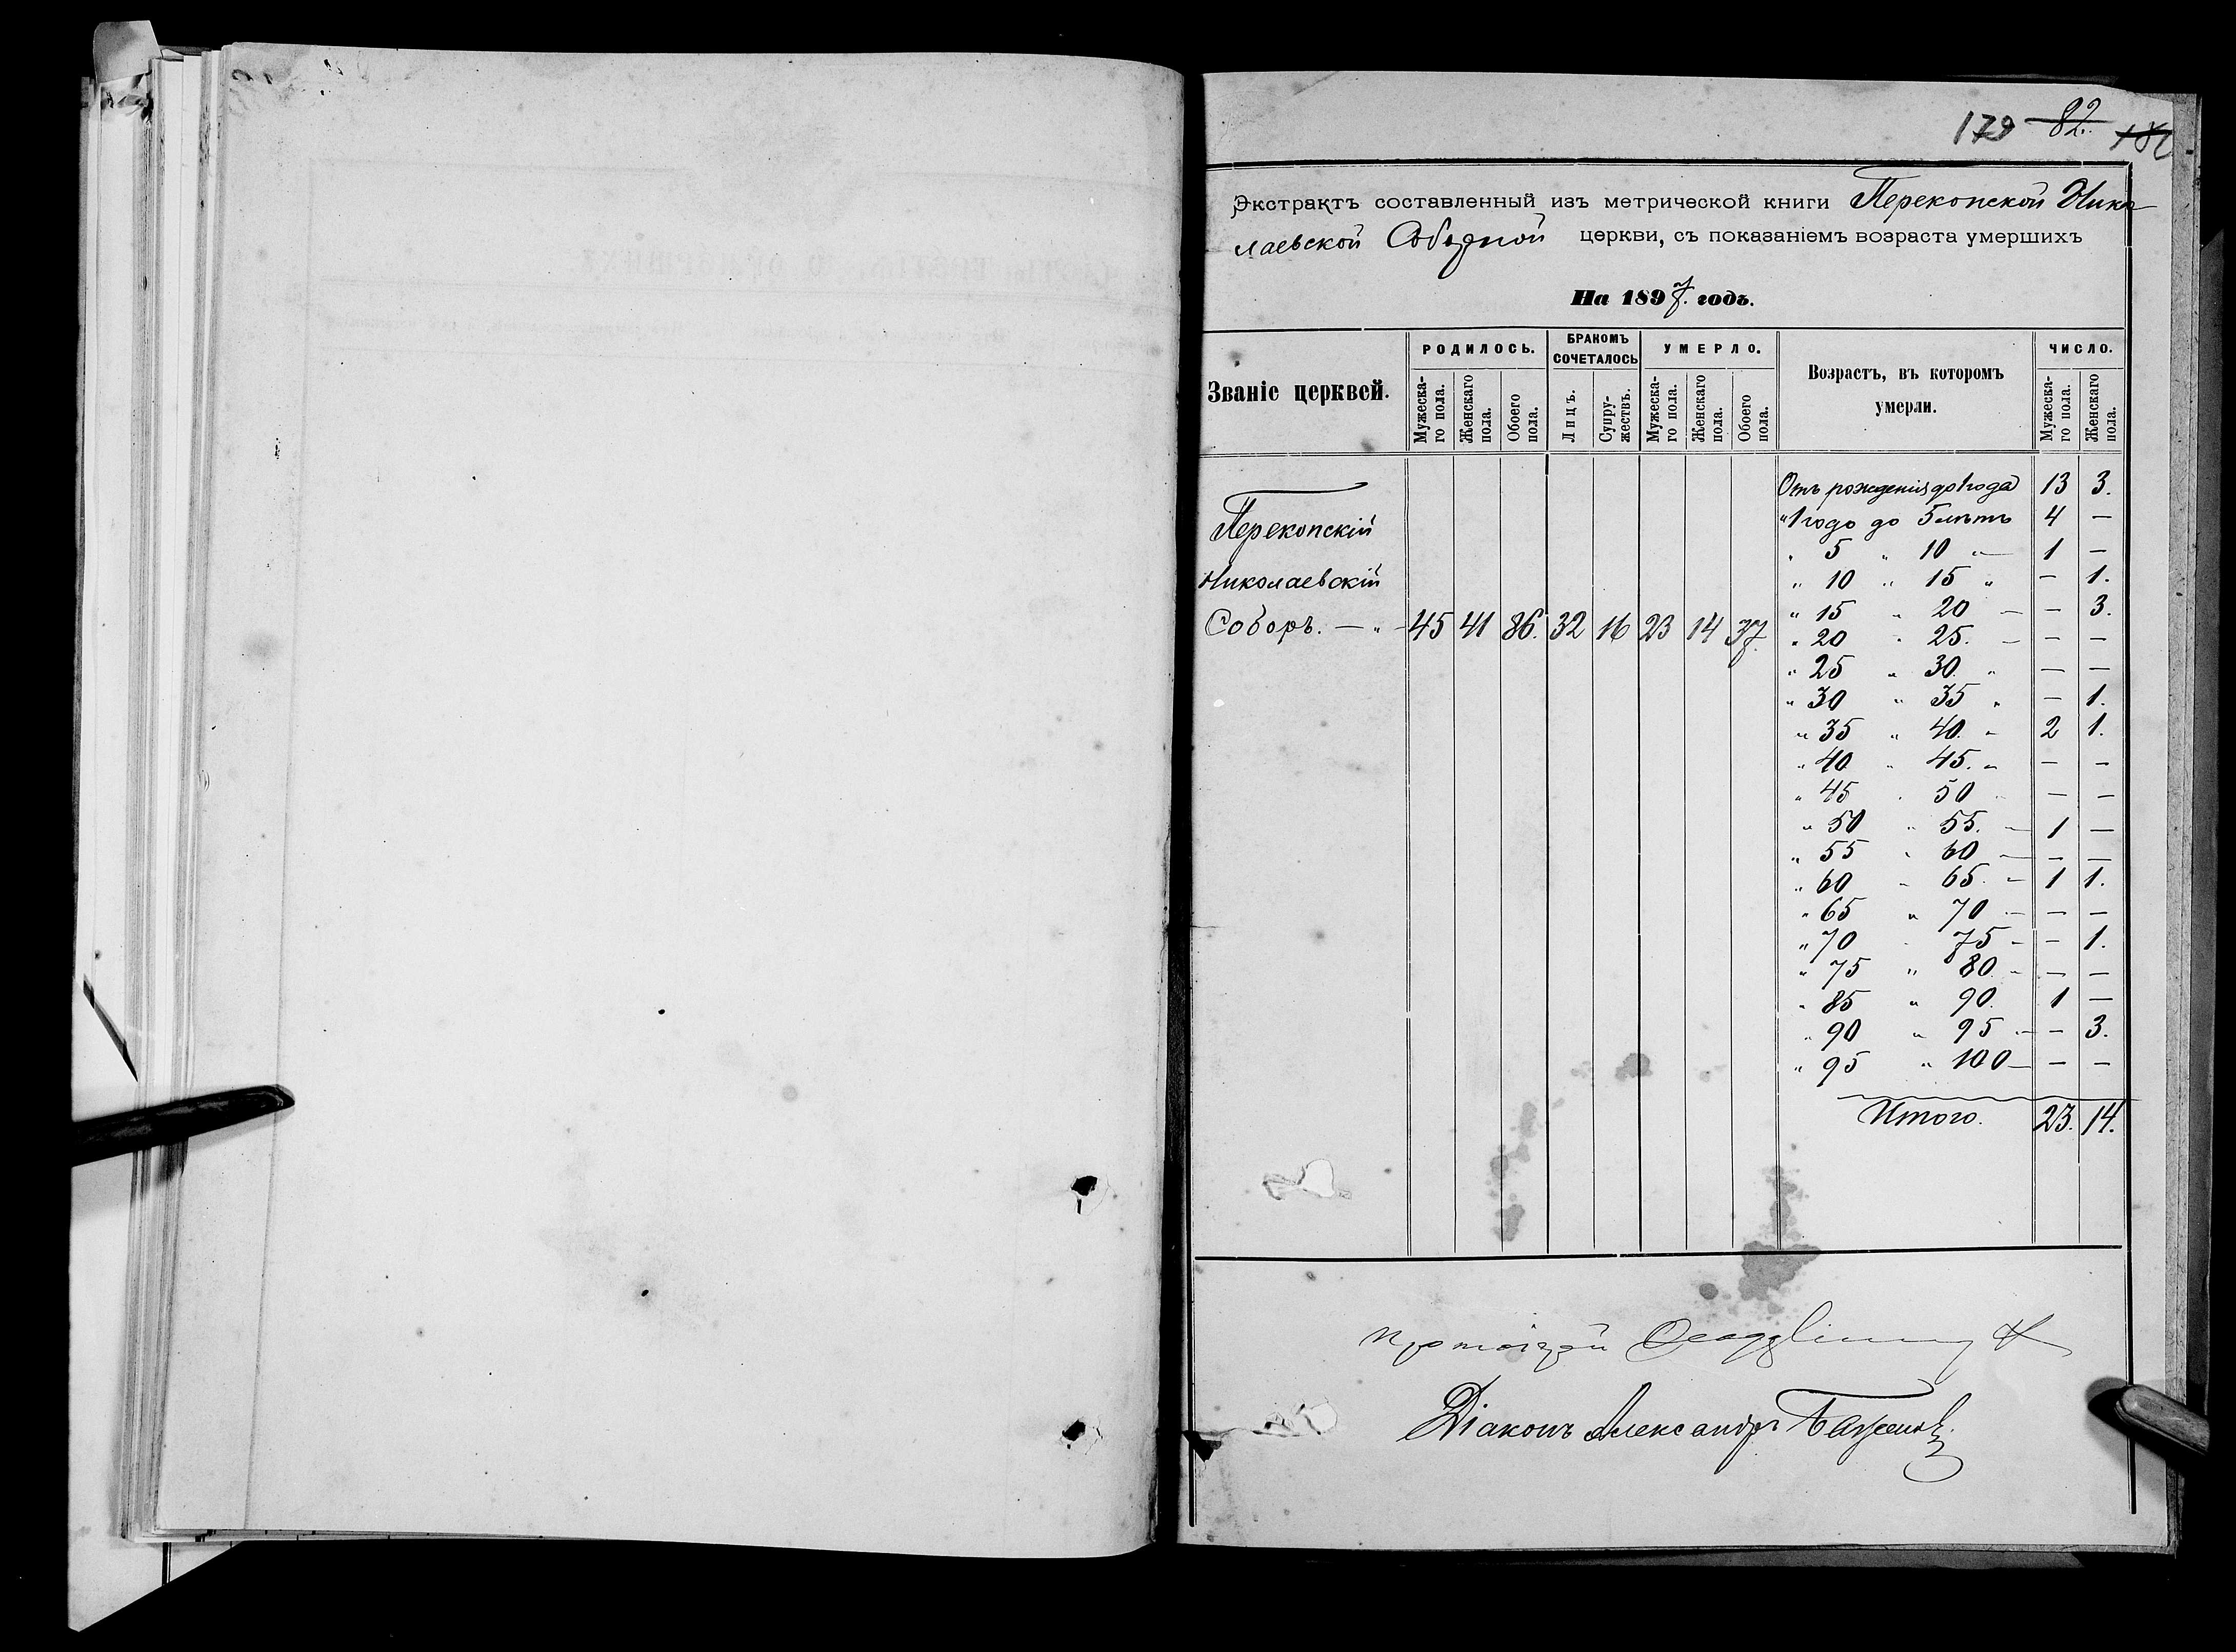 179 82. 182
Экстрактъ составленный изъ метрической книги Перекопской Нико
лаевской Соборной церкви, съ показаніемъ возраста умершихъ
На 1897. годъ.
Званіе церквей.
РОДИЛОСЬ.
БРАКОМЪ СОЧЕТАЛОСЬ
УМЕРЛО.
Возрастъ, въ которомъ умерли.
ЧИСЛО.
Мужеска-го пола.
Женскаго пола.
Обоего пола.
Лицъ.
Супру-жествъ.
Мужеска-го пола.
Женскаго пола.
Обоего пола.
Мужеска-го пола.
Женскаго пола.
Перекопскій
Николаевскій
Соборъ. — „ — 45 41 86. 32 16 23 14 37.
Отъ рожденія до 1 года 13 3.
„ 1 года до 5 лѣтъ 4 —
„ 5 „ 10 „ — 1 —
„ 10 „ 15 „ — 1.
„ 15 „ 20 — — 3.
„ 20 „ 25. — — —
„ 25 „ 30. „ — —
„ 30 „ 35 „ — 1.
„ 35 „ 40. „ 2 1.
„ 40 „ 45. „ — —
„ 45 „ 50 „ — —
„ 50 „ 55. — 1 —
„ 55 „ 60 — — —
„ 60 „ 65. — 1 1.
„ 65 „ 70 — — —
„ 70 „ 75 — — 1.
„ 75 „ 80. — — —
„ 85 „ 90. 1 —
„ 90 „ 95 — — 3.
„ 95 „ 100 — — —
Итого. 23. 14.
Протоіерей
Діаконъ Александръ Баженовъ